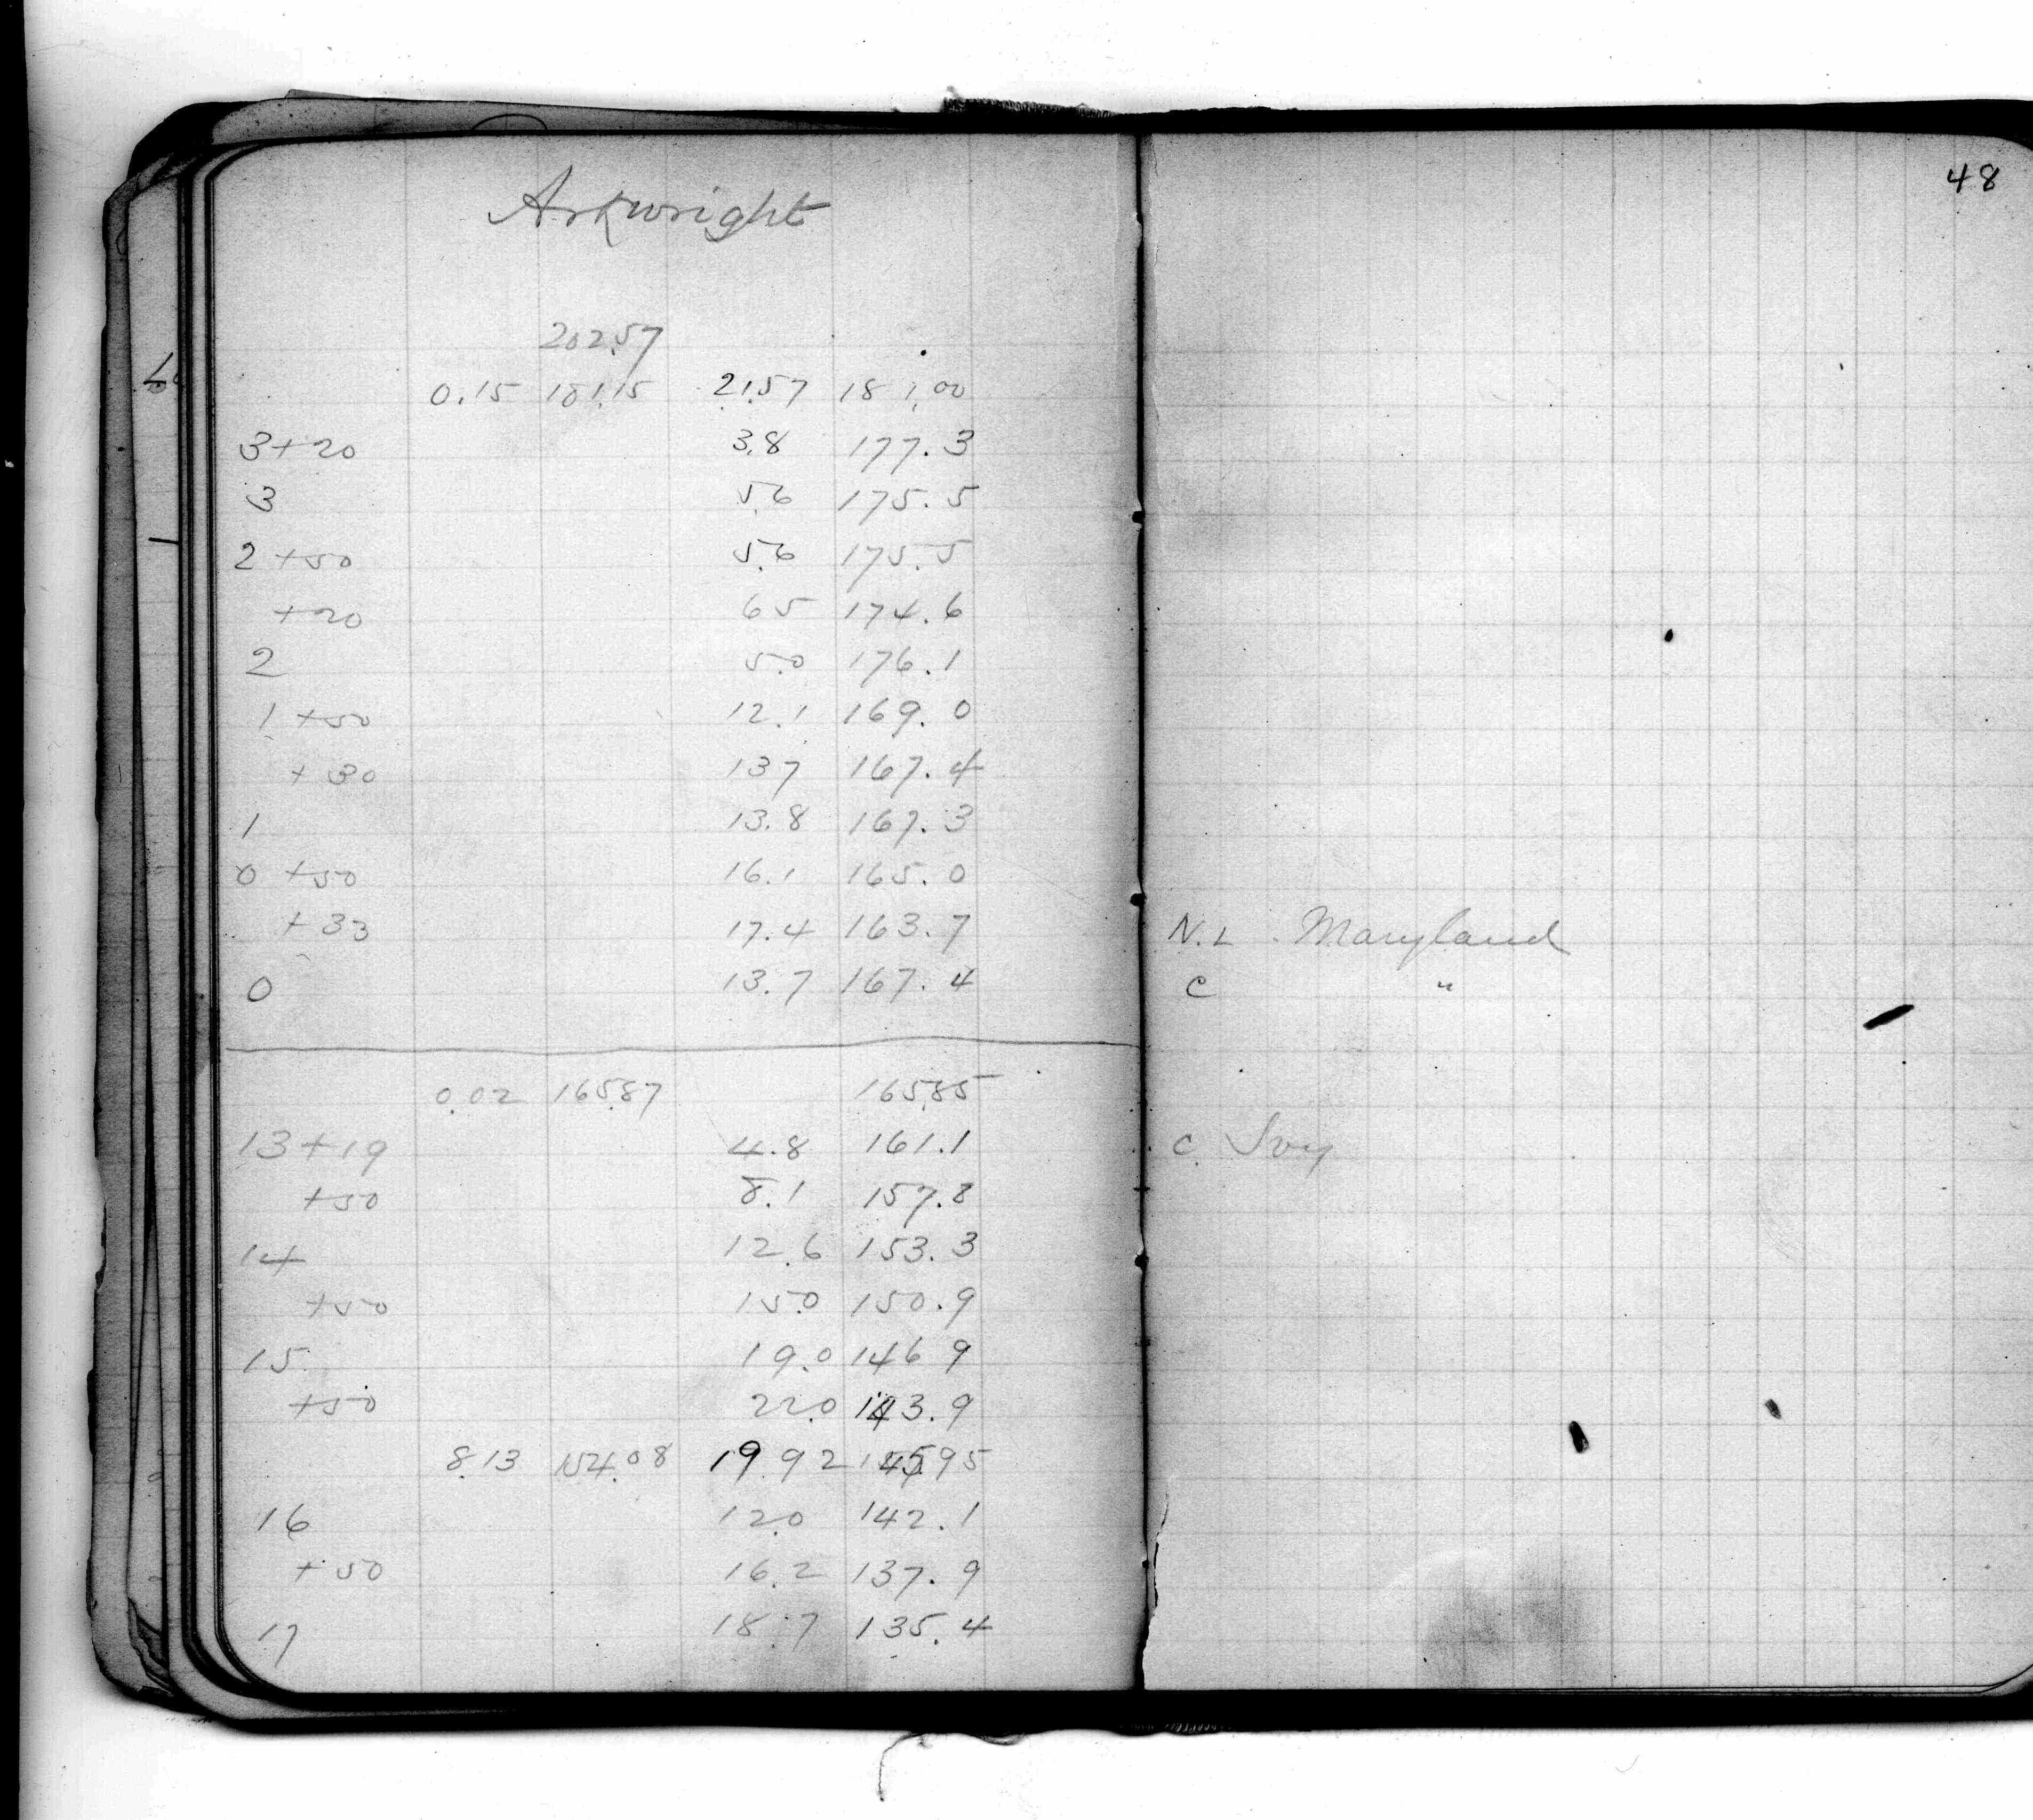 48
Arkwright
202.57
0.15 181.15 21.57 181.00
3+20 3.8 177.3
3 5.6 175.5
2+50 5.6 175.5
+20 6 5 174.6
2 5.0 176.1
1+50 12.1 169.0
+30 13 7 167.4
1 13.8 167.3
0+50 16.1 165.0
+33 17.4 163.7 N.L. Maryland
0 13.7 167.4 C "
0.02 165.87 165.85
13+19 4.8 161.1 C. Ivy
+50 8.1 157.8
14 12.6 153.3
+50 15.0 150.9
15 19.0 146 9
+50 22.0 143.9
8.13 154.08 19.92 145.95
16 12.0 142.1
+50 16.2 137.9
17 18.7 135.4